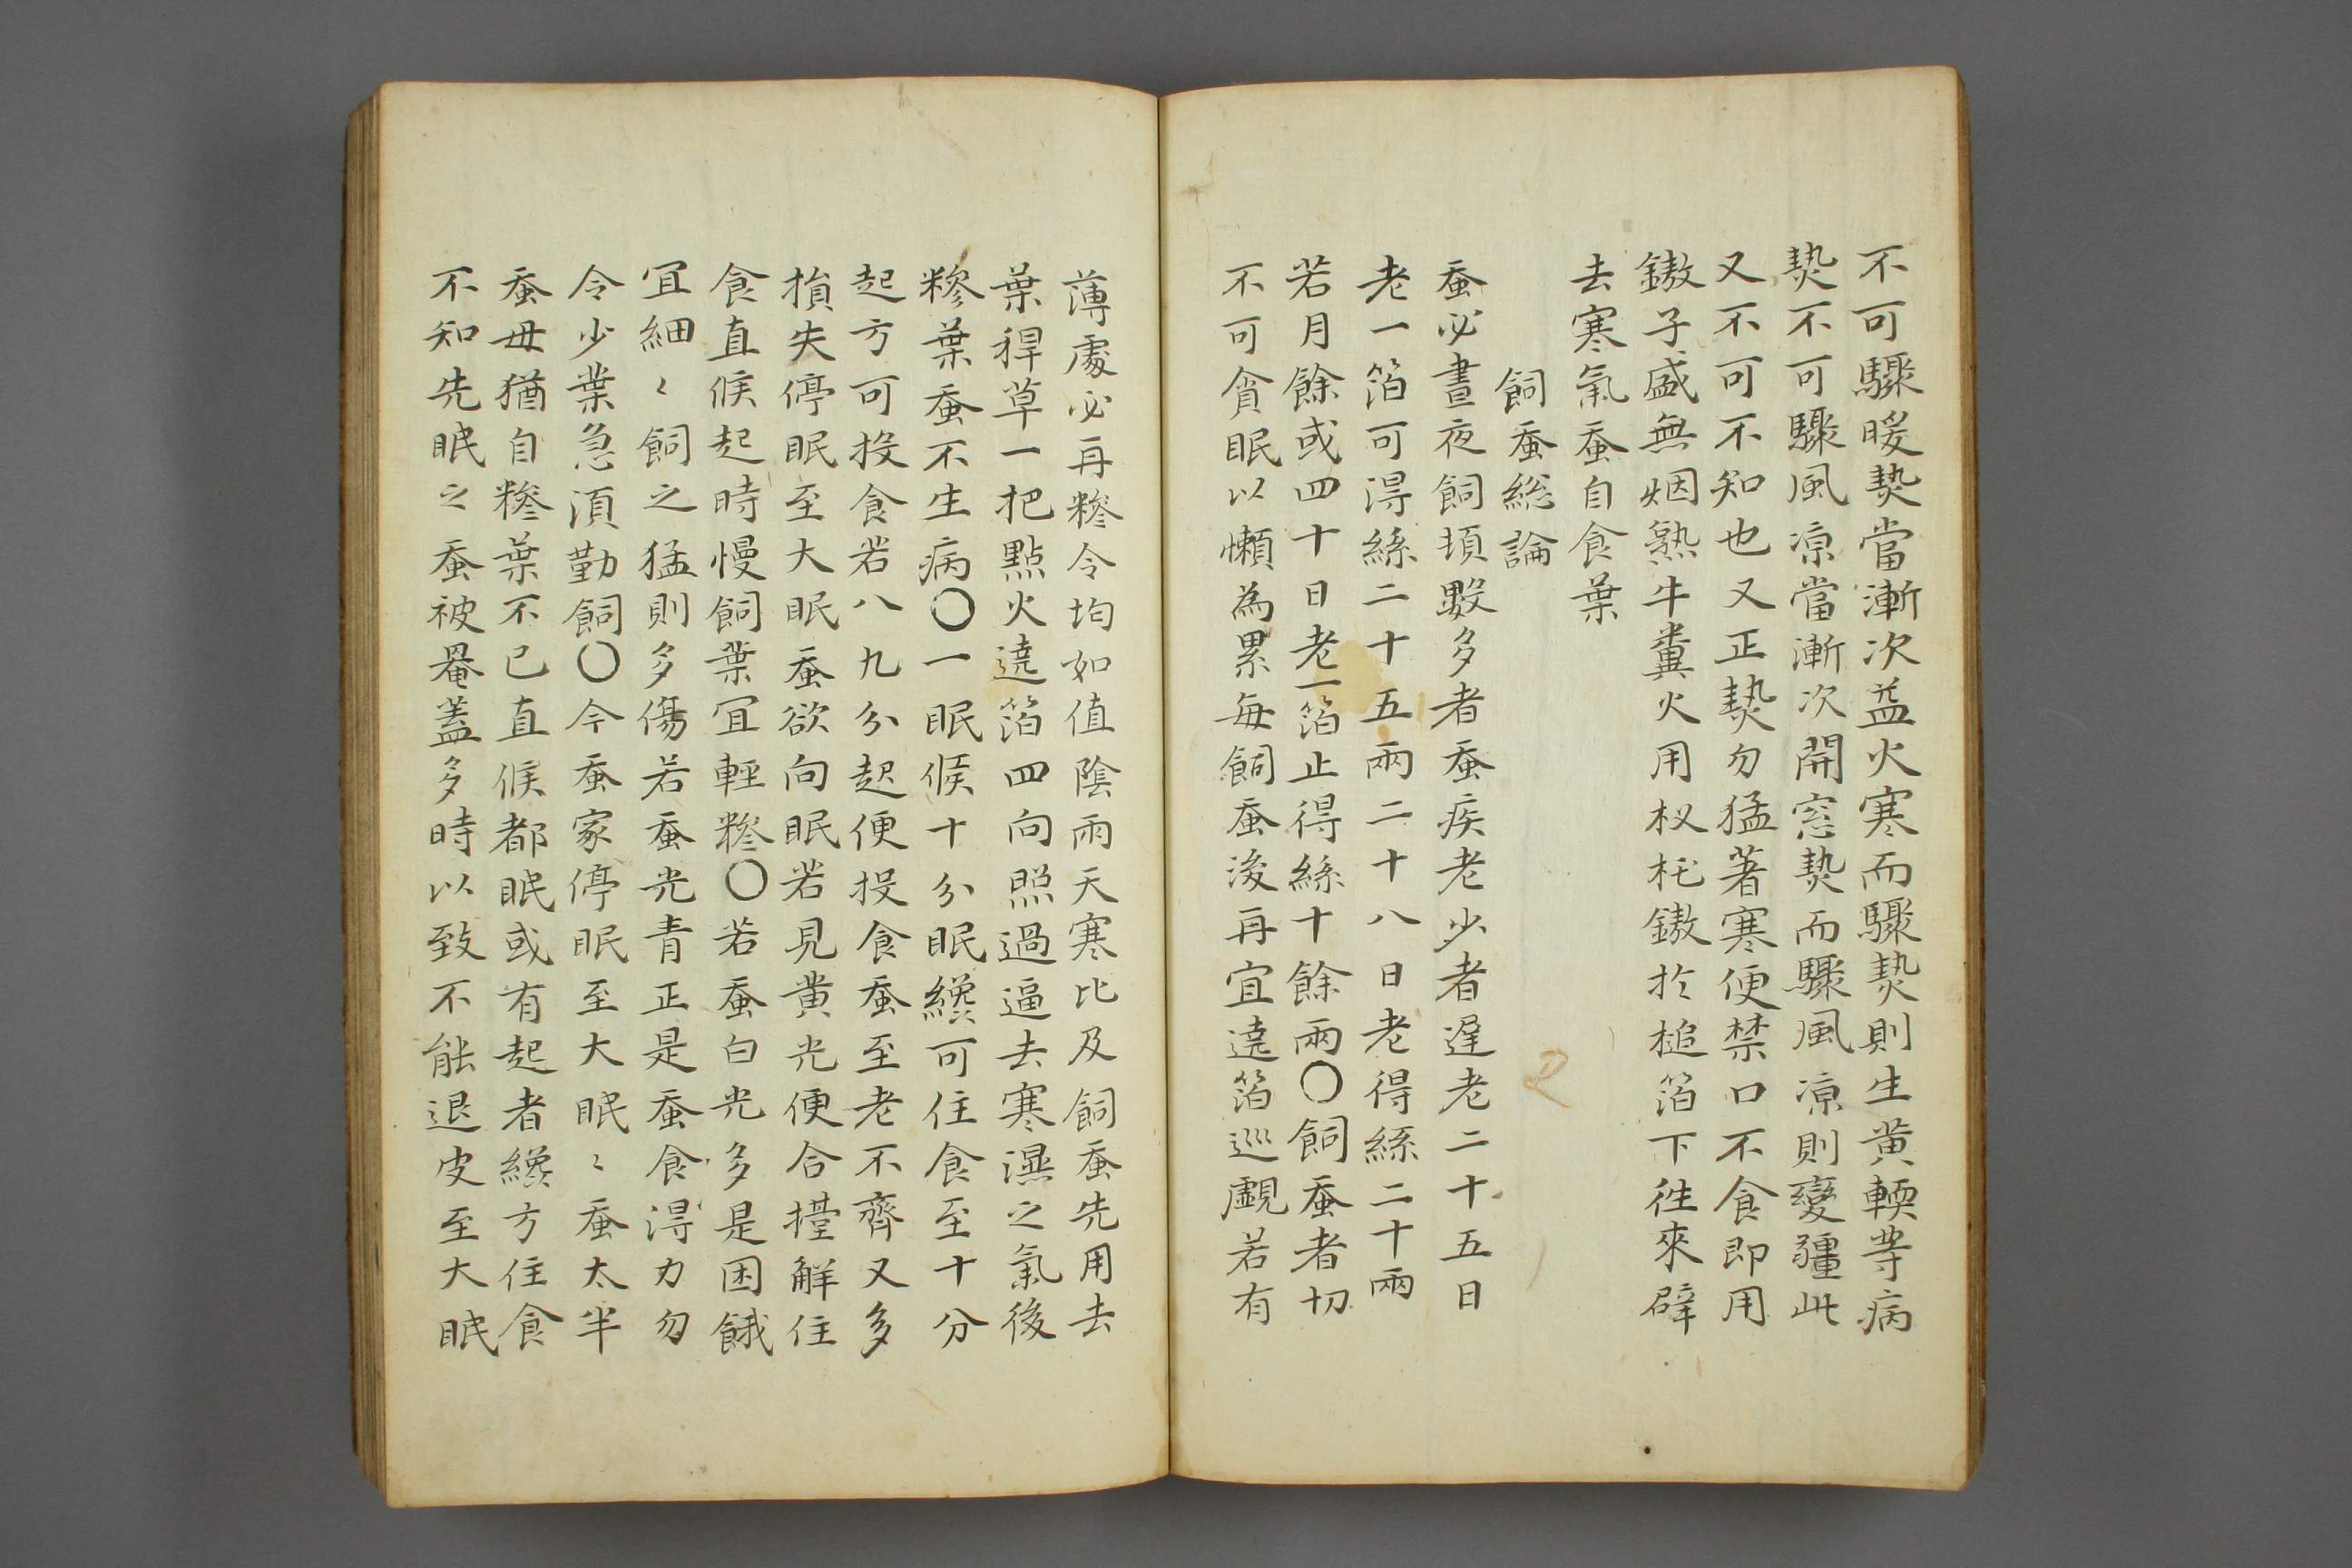 不可驟暖熱當漸次益火寒而驟熱則生黄輭等病
熱不可驟風凉當漸次開窓熱而驟風凉則變殭此
又不可不知也又正熱勿猛著寒便禁口不食即用
鏾子盛無烟熟牛糞火用杈托鏾扵槌箔下徃來辟
去寒氣蚕自食葉
飼蚕総論
蚕必晝夜飼頓數多者蚕疾老少者遅老二十五日
老一箔可淂絲二十五兩二十八日老得絲二十兩
若月餘或四十日老一箔止得絲十餘兩〇飼蚕者切
不可貪眠以懶為累每飼蚕後再宜遶箔巡覷若有
薄處必再糝令均如值陰雨天寒比及飼蚕先用去
葉稈草一把點火遶箔四向照過逼去寒濕之氣後
糝葉蚕不生病〇一眠候十分眠纔可住食至十分
起方可投食若八九分起便投食蚕至老不齊又多
損失停眠至大眠蚕欲向眠若見黄光便合擡解住
食直候起時慢飼葉冝輕糝〇若蚕白光多是困餓
冝細〻飼之猛則多傷若蚕光青正是蚕食淂力勿
令少葉急湏勤飼〇今蚕家停眠至大眠〻蚕太半
蚕毋猶自糝葉不已直候都眠或有起者纔方住食
不知先眠之蚕被罨蓋多時以致不能退皮至大眠